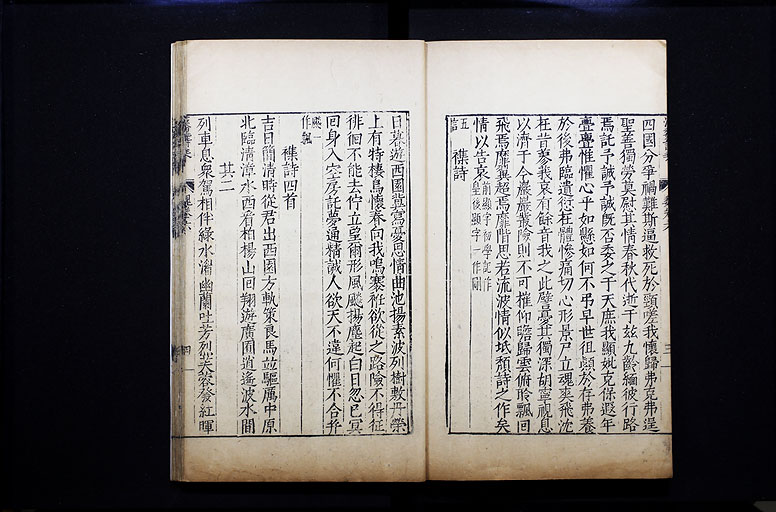 四國分爭禍難斯逼救死於頸嗟我懷歸弗克弗逞
聖善獨勞莫慰其情春秋代逝于兹九齡緬彼行路
焉託予誠予誠既否委之于天庶我顯妣克保遐年
亹亹惟懼心乎如懸如何不弔早世徂顛於存弗養
於後弗臨遺愆在體慘痛切心形景尸立魂爽飛沈
在昔蓼莪哀有餘音我之此譬憂其獨深胡寧視息
以濟于今巖巖叢險則不可摧仰瞻歸雲俯聆飄回
飛焉靡翼超焉靡階思若流波情似坻頹詩之作矣
情以告哀
五言
襍詩
日暮遊西園冀寫憂思情曲池揚素波列樹敷丹榮
上有特棲鳥懷春向我鳴褰袵欲從之路險不得征
徘徊不能去佇立望爾形風飈揚塵起白日忽已冥
回身入空房託夢通精誠人欲天不違何懼不合并
飈一
作飄
襍詩四首
吉日簡清時從君出西園方軌策良馬竝驅厲中原
北臨清漳水西看柏楊山回翔遊廣囿逍遙波水間
其二
列車息衆駕相伴綠水湄幽蘭吐芳烈芙蓉發紅暉
四